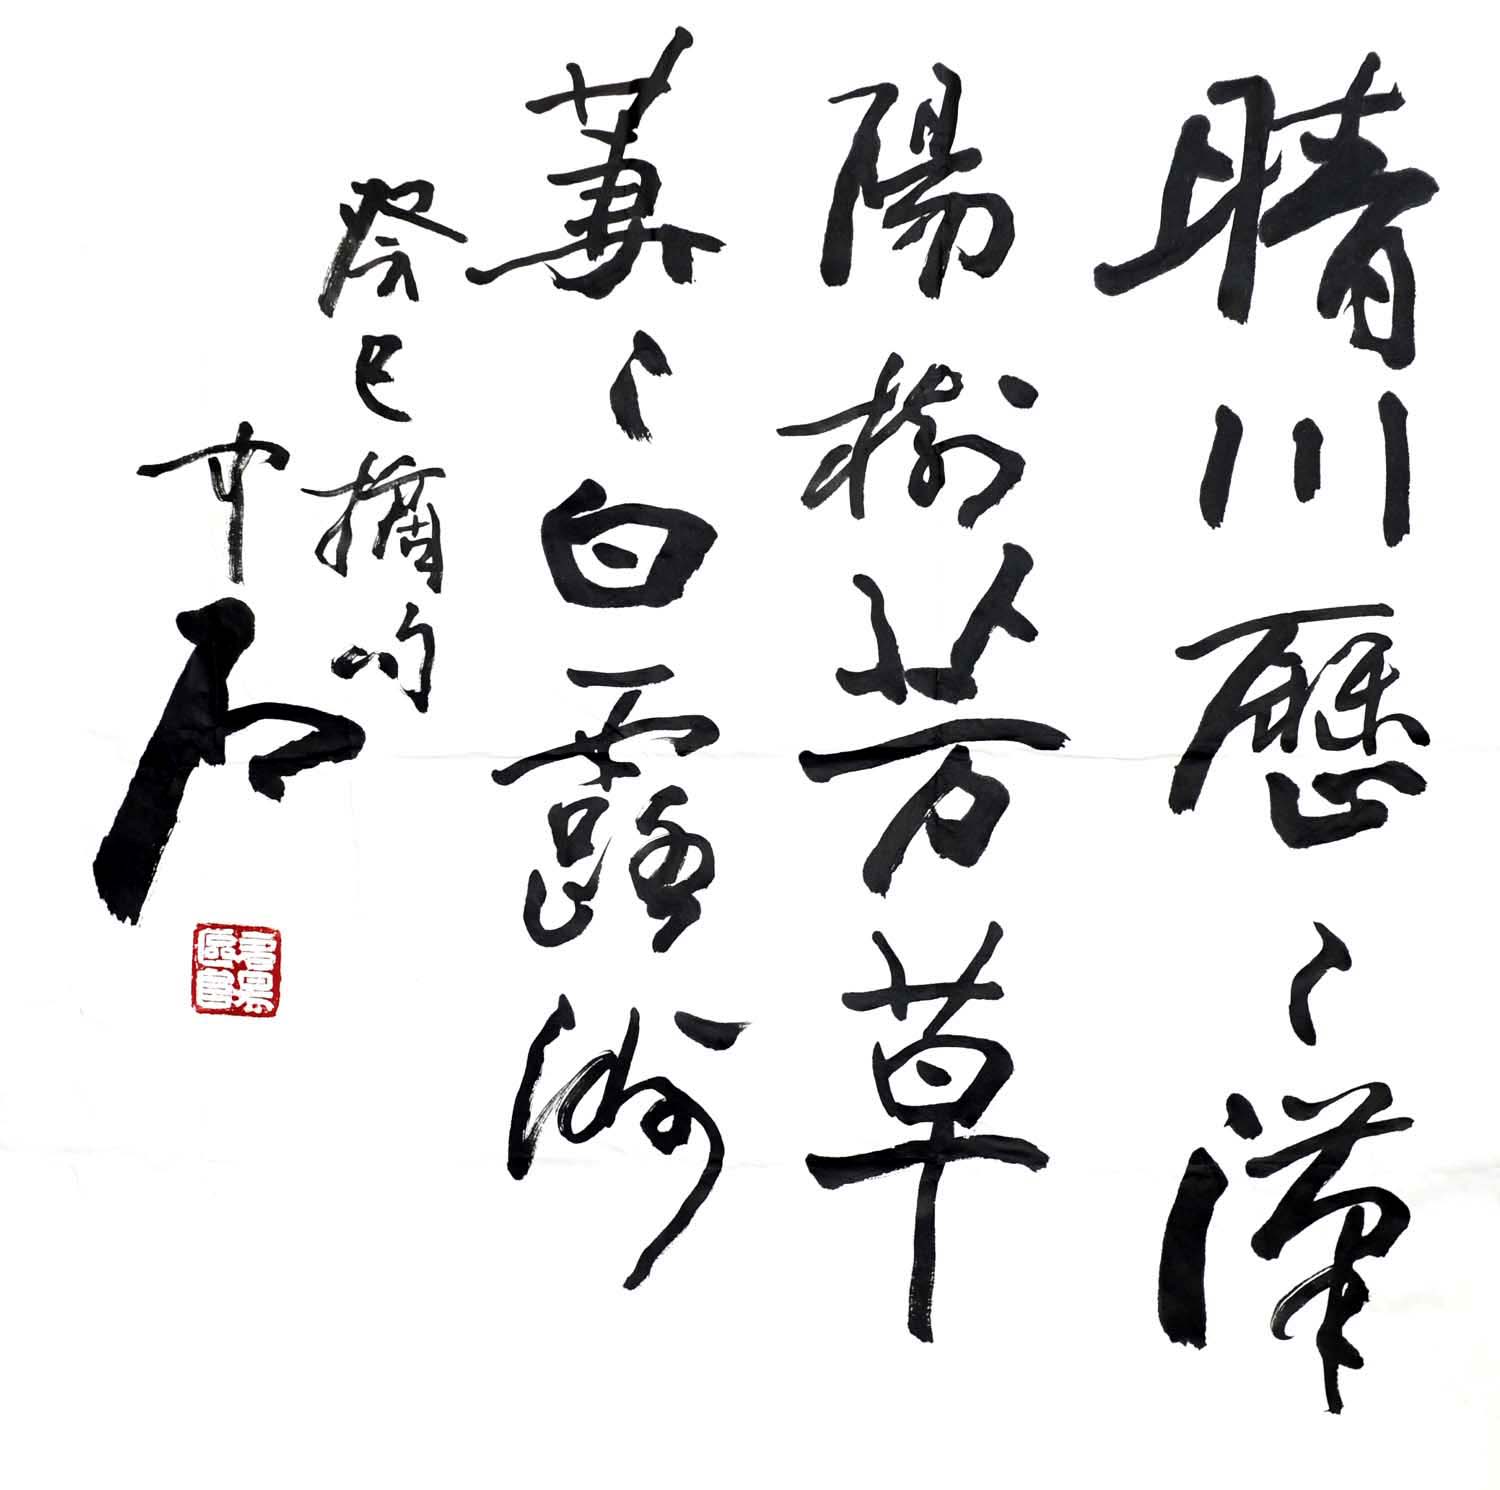 晴川歷〻漢
陽樹芳草
萋〻白露洲
癸巳摘句
中石